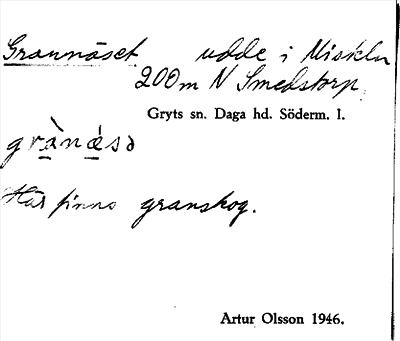 Grannäset udde i Miskeln
200 m N Smedstorp
Gryts sn. Daga hd. Söderm. l.
grànǽsə
Här finns granskog.
Artur Olsson 1946.